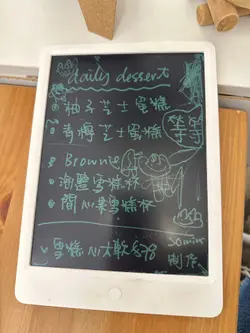 daily dessert
柚子芝士蛋糕
青檸芝士蛋糕
等等
Brownie
海鹽雪糕杯
開心果雪糕杯
雪糕
$78
Somin
制作